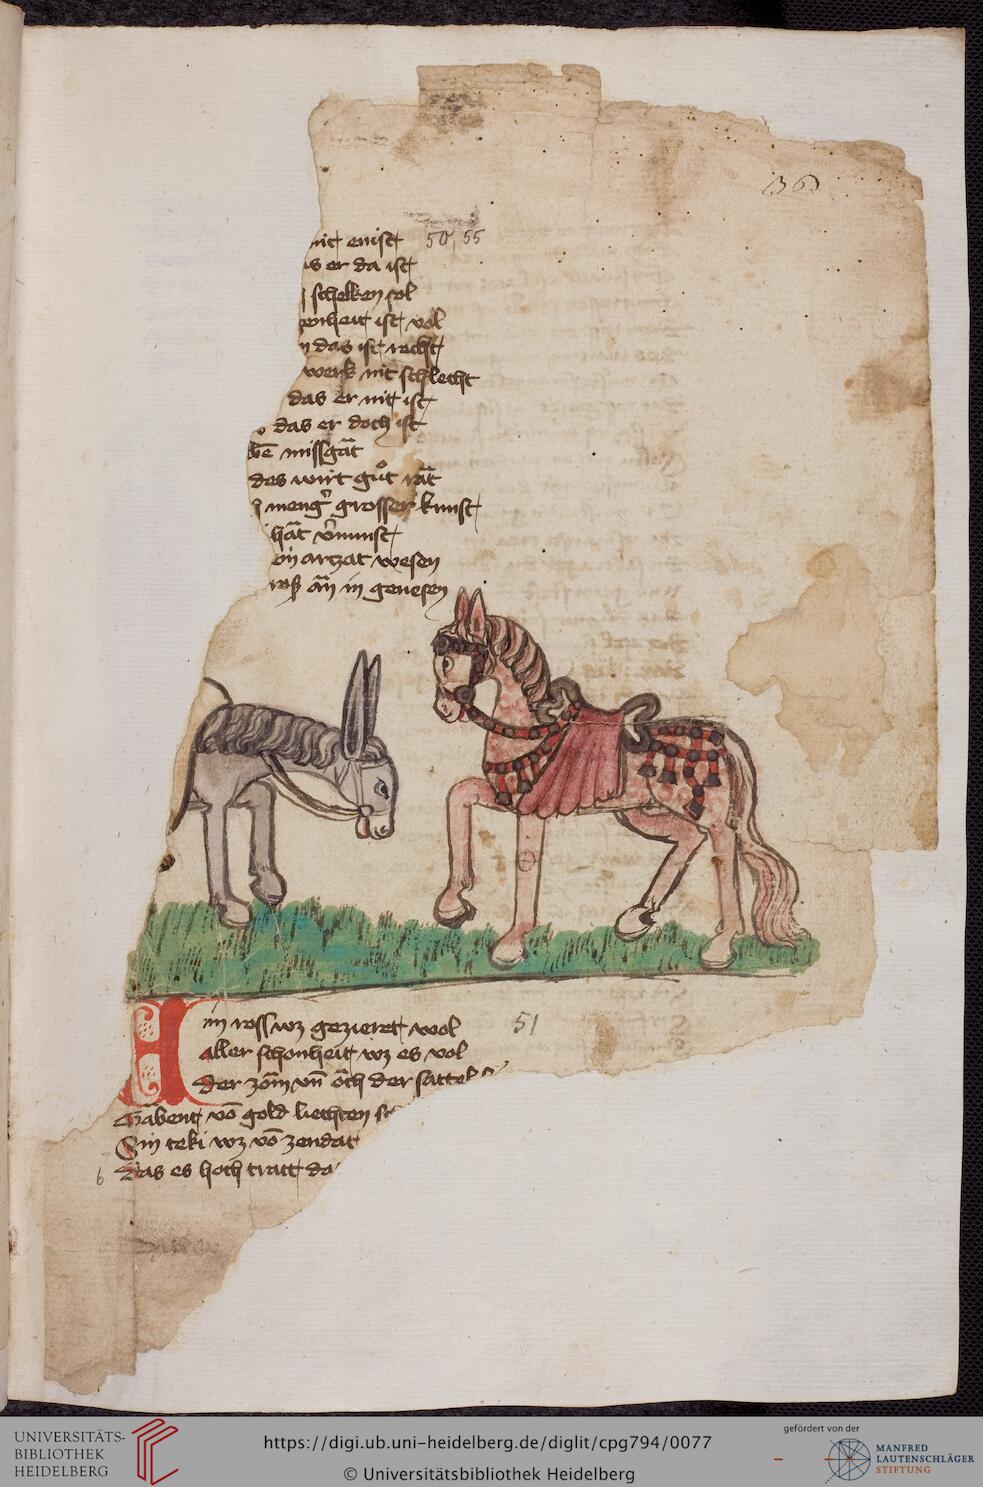 36
nit enist 50, 55
s er da ist
schelken sol
enheit ist vol
n das ist recht
werk nit schlecht
das er nit ist
das er doch ist
bē missgāt
des wirt gůt rāt
meng' grosser kunst
hāt v'nunst
on arzat wesen
ross ān in genesen
in ross wz gezieret wol 51
aller schonheit wz es vol
der zōm vn̄ ōch der sattel
Gābent vō gold liechten
Sin teki wz vō zendat
6 Das es hoch tratt da
UNIVERSITÄTS-
BIBLIOTHEK
HEIDELBERG
https://digi.ub.uni-heidelberg.de/diglit/cpg794/0077
© Universitätsbibliothek Heidelberg
gefördert von der
MANFRED
LAUTENSCHLÄGER
STIFTUNG